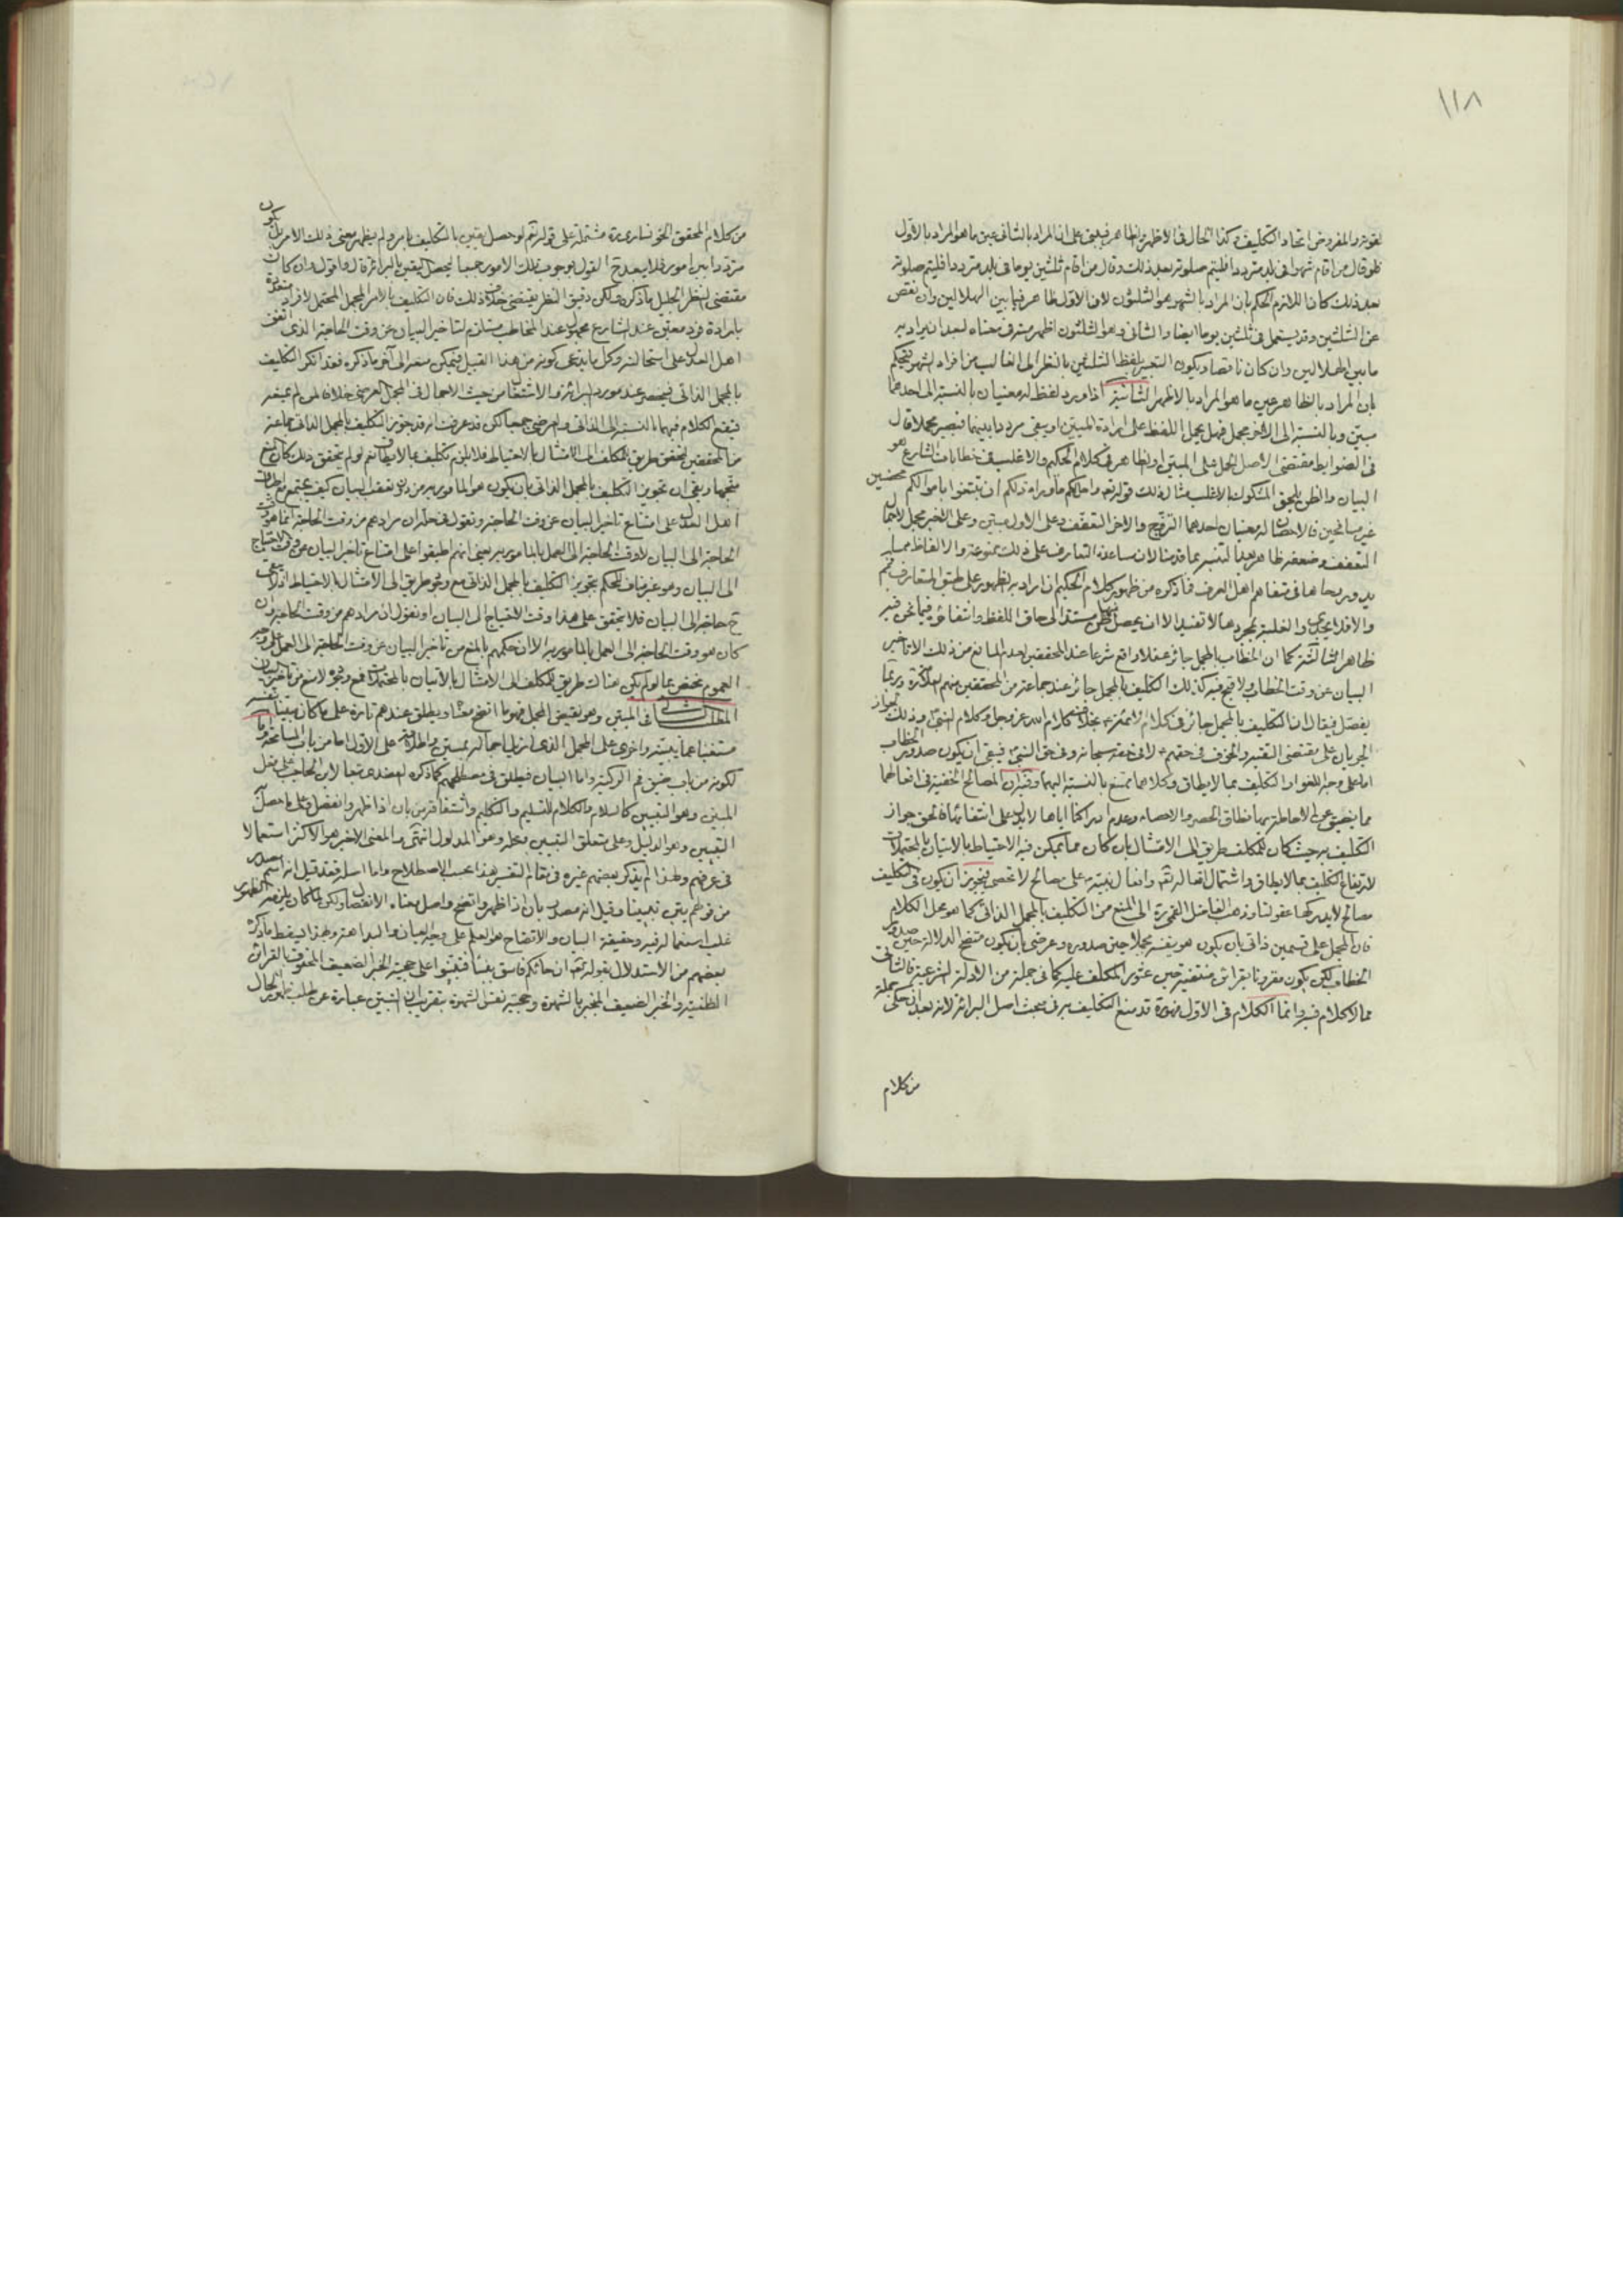 ١١٨
لقوته والمفروض اتحاد التكليف وكذا الحال فى الاظهر والظاهر فيبنى على ان المراد بالثانى عين ما هو المراد بالاول
فلو قال من اقام شهرا فى بلد مترددا فليتم صلوته بعد ذلك وقال من اقام ثلثين يوما فى بلد مترددا فليتم صلوته
بعد ذلك كان اللازم الحكم بان المراد بالشهر هو الثلثون لان الاول ظاهر فيما بين الهلالين وان نقص
عن الثلثين وقد يستعمل فى ثلثين يوما ايضا والثانى وهو الثلثون اظهر منه فى معناه لبعد ان يراد به
ما بين الهلالين وان كان ناقصا ويكون التعبير بلفظ الثلثين بالنظر الى الغالب من افراد الشهر فيحكم
بان المراد بالظاهر عين ما هو المراد بالاظهر الثانية اذا ورد لفظ له معنيان بالنسبة الى احدهما
مبين وبالنسبة الى الاخر مجمل فهل يحمل اللفظ على ارادة المبين او يبقى مرددا بينهما فيصير مجملا قال
فى الضوابط مقتضى الاصل الحمل على المبين اذ الظاهر فى كلام الحكيم والاغلب فى خطابات الشارع هو
البيان والظن يلحق المشكوك بالاغلب مثال ذلك قوله تعالى واحل لكم ما وراء ذلكم ان تبتغوا باموالكم محصنين
غير مسافحين فالاحصان له معنيان احدهما التزويج والاخر التعفف وعلى الاول مبين وعلى الاخير مجمل لاجمال
التعفف وضعفه ظاهر بعد التبصر بما قدمنا لان مساعدة التعارف على ذلك ممنوعة والالفاظ مما
يدور رحاها فى تفاهم اهل العرف فما ذكره من ظهور كلام الحكيم ان اراد به الظهور على طبق المتعارف فنعم
والا فلا يجدى والغلبة بمجردها لا تفيد الا ان يحصل منها ظن مستند الى حاق اللفظ وانتفائه فيما نحن فيه
ظاهر الثالثة كما ان الخطاب بالمجمل جائز عقلا وواقع شرعا عند المحققين لعدم المانع من ذلك الا تاخير
البيان عن وقت الخطاب ولا قبح فيه كذلك التكليف بالمجمل جائز عند جماعة من المحققين منهم العلامة وربما
يفصل فيقال ان التكليف بالمجمل جائز فى كلام الائمة بخلاف كلام الله عز وجل وكلام النبى وذلك لجواز
الجريان على مقتضى التقية والخوف فى حقهم لا فى حقه سبحانه وفى حق النبى فيبقى ان يكون صدور الخطاب
اما على وجه اللغو او التكليف بما لا يطاق وكلاهما ممتنع بالنسبة اليهما وفيه ان المصالح الخفية فى افعالهما
مما يضيق عن الاحاطة بها نطاق الحصر والاحصاء وعدم ادراكنا اياها لا يدل على انتفائها فالحق جواز
التكليف به حيث كان للمكلف طريق الى الامتثال بان كان مما يمكن فيه الاحتياط بالاتيان بالمحتملات
لارتفاع التكليف بما لا يطاق واشتمال افعاله تعالى وافعال نبيه على مصالح لا تحصى فيجوز ان يكون فى التكليف
مصالح لا يدركها عقولنا وذهب الفاضل القمى ره الى المنع من التكليف بالمجمل الذاتى كما هو محل الكلام
فان المجمل على قسمين ذاتى بان يكون هو بنفسه مجملا حين صدوره وعرضى بان يكون متضح الدلالة حين صدور
الخطاب لكن يكون مقرونا بقرائن منتفية حين عثور المكلف عليه كما فى جملة من الادلة الشرعية فالثانى
مما لا كلام فيه وانما الكلام فى الاول فهو ره قد منع التكليف به فى مبحث اصل البرائة لانه بعد ان حكى جملة
من كلام
من كلام المحقق الخونسارى ره مشتملة على قوله نعم لو حصل يقين بالتكليف بامر ولم يظهر معنى ذلك الامر بل يكون
مترددا بين امور فلا يبعد ح القول بوجوب تلك الامور جميعا ليحصل اليقين بالبرائة قال واقول وان كان
مقتضى النظر الجليل ما ذكره ولكن دقيق النظر يقتضى خلاف ذلك فان التكليف بالامر المجمل المحتمل لافراد متعددة
بارادة فرد معين عند الشارع مجهول عند المخاطب مستلزم لتاخير البيان عن وقت الحاجة الذى اتفق
اهل العدل على استحالته وكل ما يدعى كونه من هذا القبيل فيمكن منعه الى آخر ما ذكره فقد انكر التكليف
بالمجمل الذاتى فيحصر عنده مورد البرائة والاشتغال من حيث الاجمال فى المجمل العرضى خلافا لمن لم يمنعه
فيقع الكلام فيهما بالنسبة الى الذاتى والعرضى جميعا لكن قد عرفت انه قد يجوز التكليف بالمجمل الذاتى جماعة
من المحققين لتحقق طريق للمكلف الى الامتثال بالاحتياط فلا يلزم تكليف بما لا يطاق نعم لو لم يتحقق ذلك كان المنع
متجها وبقى ان تجويز التكليف بالمجمل الذاتى بان يكون هو المامور به من دون تعقب البيان كيف يجتمع مع اطباق
اهل العدل على امتناع تاخير البيان عن وقت الحاجة ونقول فى حله ان مرادهم من وقت الحاجة انما هو وقت
الحاجة الى البيان لا وقت الحاجة الى العمل بالمامور به يعنى انهم اطبقوا على امتناع تاخير البيان عن وقت الاحتياج
الى البيان وهو غير مناف للحكم بتجويز التكليف بالمجمل الذاتى مع وجود طريق الى الامتثال بالاحتياط اذ لا يبقى
ح حاجة الى البيان فلا يتحقق على هذا وقت الاحتياج الى البيان او نقول ان مرادهم من وقت الحاجة وان
كان هو وقت الحاجة الى العمل بالمامور به الا ان حكمهم بالمنع من تاخير البيان عن وقت الحاجة الى العمل على وجه
العموم مختص بما لو لم يكن هناك طريق للمكلف الى الامتثال بالاتيان بالمحتملات فمع وجوده لا منع من تاخير البيان
المطلب الثانى فى المبين وهو نقيض المجمل فهو ما اتضح معناه ويطلق عندهم تارة على ما كان مبينا بنفسه
مستغنيا عما يبينه واخرى على المجمل الذى ازيل اجماله بمبين واطلاقه على الاول اما من باب المسامحة واما
لكونه من باب ضيق فم الركية واما البيان فيطلق فى مصطلحهم كما ذكره العضدى تبعا لابن الحاجب على فعل
المبين وهو التبيين كالسلام والكلام للتسليم والتكليم واشتقاقه من بان اذا ظهر وانفصل وعلى ما حصل به
التبيين وهو الدليل وعلى متعلق التبيين ومحله وهو المدلول انتهى والمعنى الاخير هو الاكثر استعمالا
فى عرفهم ولهذا لم يذكر بعضهم غيره فى مقام التفسير هذا بحسب الاصطلاح واما اصله فقد قيل انه اسم مصدر
من قولهم بين تبيينا وقيل انه مصدر بان اذا ظهر واتضح واصل معناه الانفصال ولكن لما كان يلزمه الظهور
غلب استعماله فيه وحقيقة البيان والاتضاح هو العلم على وجه العيان والبداهة وبهذا يسقط ما ذكره
بعضهم من الاستدلال بقوله تعالى ان جائكم فاسق بنبأ فتبينوا على حجية الخبر الضعيف المحفوف بالقرائن
الظنية والخبر الضعيف المنجبر بالشهرة وحجية نفس الشهرة بتقريب ان التبين عبارة عن طلب ظهور الحال